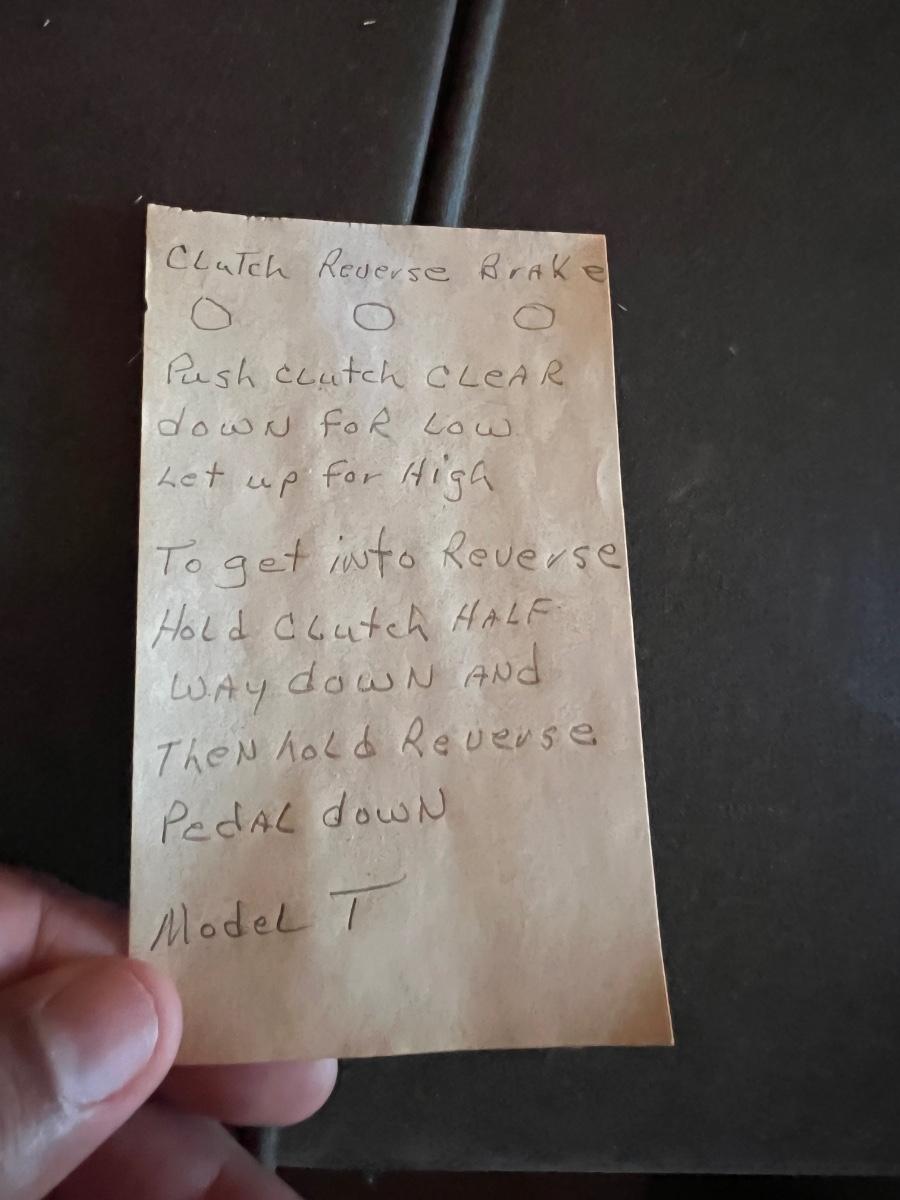 Clutch Reverse Brake
Push Clutch CLEAR
down for Low
Let up for High
To get into Reverse
Hold Clutch HALF
WAY down AND
Then hold Reverse
Pedal down
Model T